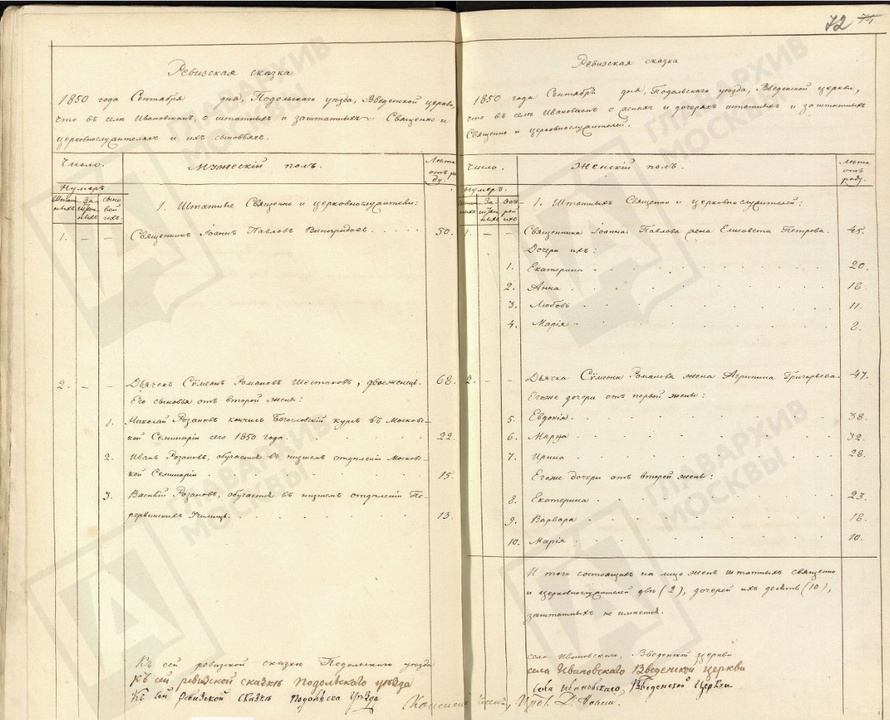 72
Ревизская сказка
1850 года Сентября дня, Подольскаго уезда, Введенской церкви,
что въ селе Ивановскомъ, о штатныхъ и заштатныхъ Священно и
церковнослужителяхъ и ихъ сыновьяхъ.
Число. Мужескій полъ. Лета отъ роду.
Нумеръ
Штатныхъ За штатныхъ Сыновей ихъ.
1. Штатные Священно и церковнослужители:
1. – – Священникъ Іоаннъ Павловъ Виноградовъ 50.
2. – – Дьячекъ Сѵмеонъ Романовъ Шестаковъ, двоеженецъ. 68.
Его сыновья отъ второй жены:
1. Николай Розановъ кончилъ Богословскій курсъ въ Московс-
кой Семинаріи сего 1850 года. 22.
2. Иванъ Розановъ, обучается въ низшемъ отделеніи Московс-
кой Семинаріи 15.
3. Василій Розановъ, обучается въ низшемъ отделеніи Пе-
рервинскихъ Училищъ. 13.
Къ сей ревизской сказке Подольскаго уезда
Къ сей ревизской сказке Подольскаго уезда
Къ сей Ревизской Сказке Подольска Уезда
Ревизская сказка
1850 года Сентября дня, Подольскаго уезда, Введенской церкви,
что въ селе Ивановскомъ о женахъ и дочеряхъ штатныхъ и заштатныхъ
Священно и церковнослужителей.
Число. Женскій полъ. Лета отъ роду.
Нумеръ.
Штатныхъ За штатныхъ Дочерей ихъ
1. Штатныхъ Священно и церковнослужителей:
1. – – Священника Іоанна Павлова жена Елисавета Петрова. 45.
Дочери ихъ:
1. Екатерина 20.
2. Анна 16
3. Любовь 11.
4. Марія 2.
2. – – Дьячка Сѵмеона Романова жена Агрипина Григорьева. 47.
Его же дочери отъ первой жены:
5. Евдокія 38.
6. Марѳа 32.
7. Ирина 28.
Его же дочери отъ второй жены:
8. Екатерина 23.
9. Варвара 16.
10. Марія 10.
И того состоящихъ на лицо женъ штатныхъ священно
и церковнослужителей две (2), дочерей ихъ десять (10),
заштатныхъ не имеется.
села Ивановскаго, Введенской церкви
села Ивановскаго Введенской церкви
Села Ивановскаго, Введенской Церкви
ГЛАВАРХИВ МОСКВЫ
ГЛАВАРХИВ МОСКВЫ
ГЛАВАРХИВ МОСКВЫ
ГЛАВАРХИВ МОСКВЫ